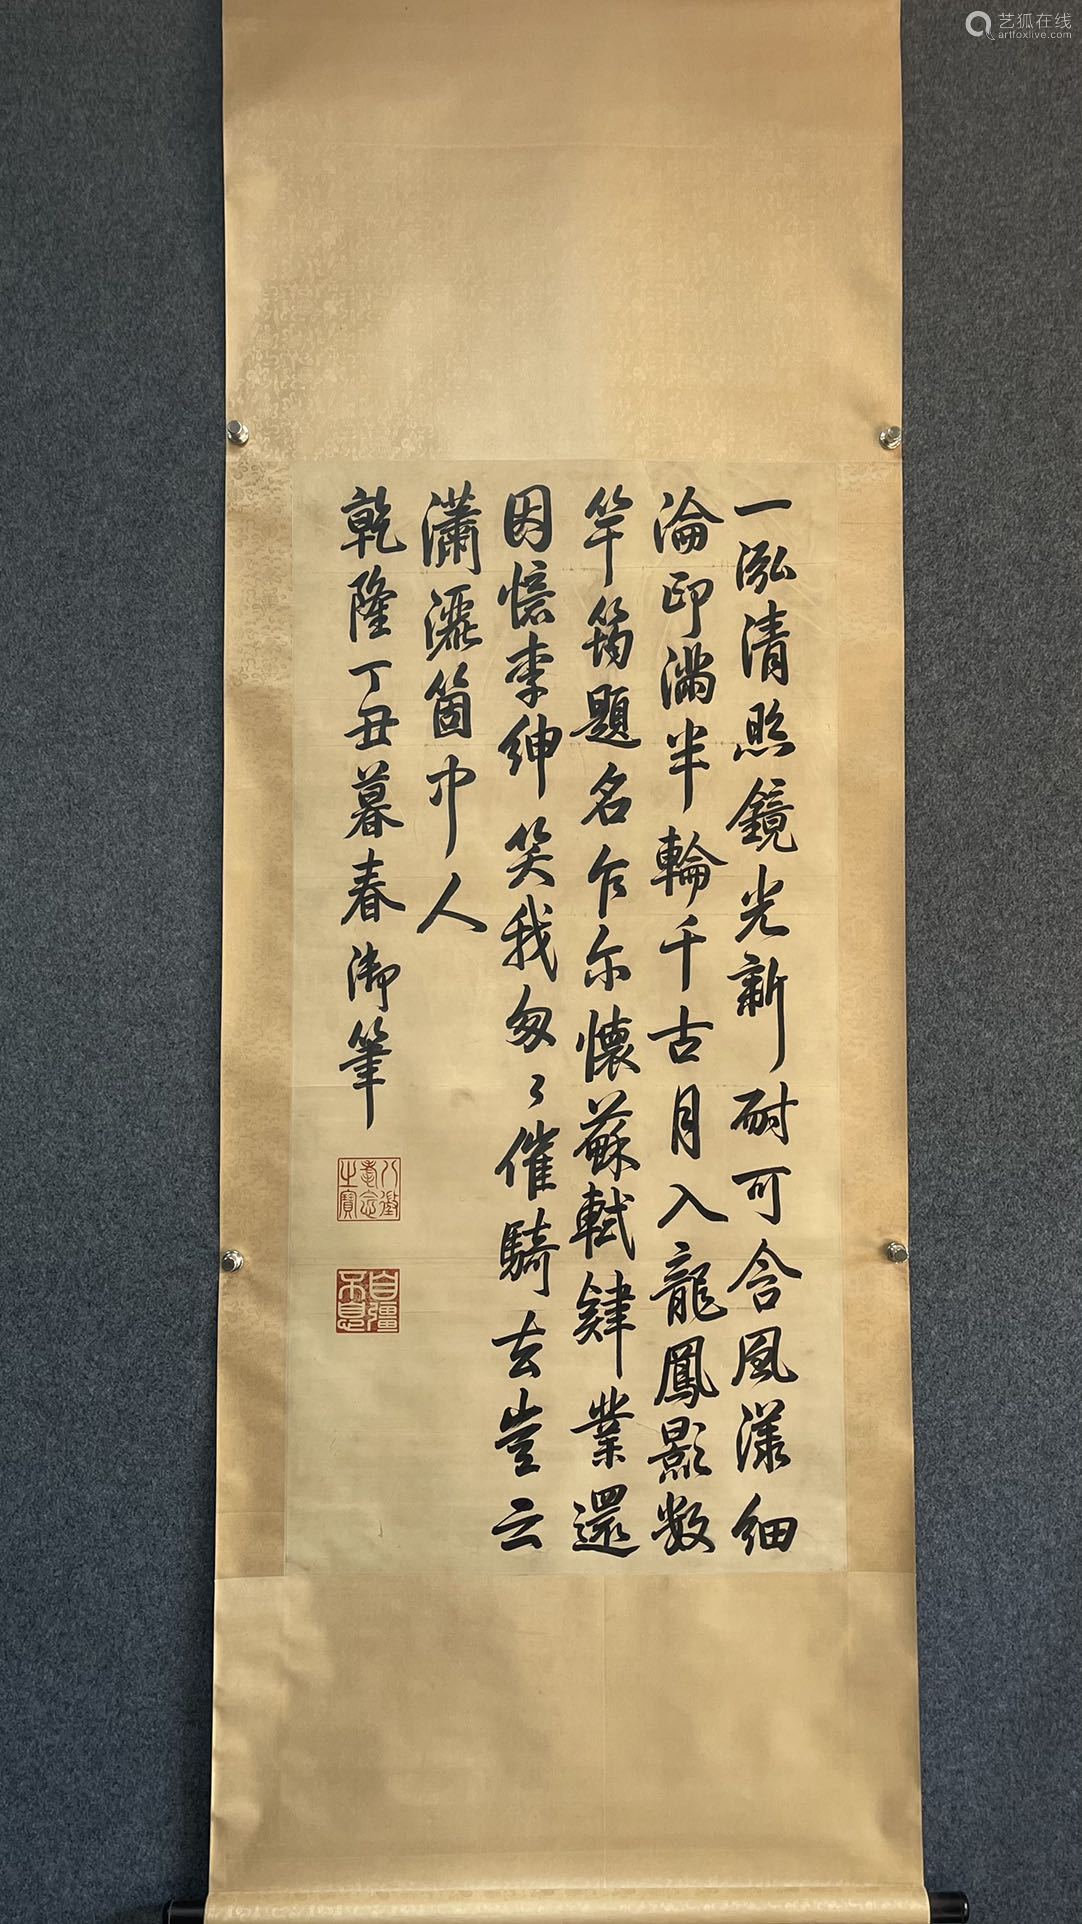 一泓清照鏡光新耐可含風漾細
淪印滿半輪千古月入龍鳳影數
竿筠題名乍尔懷蘇軾肄業還
因憶李紳笑我匆〻催騎去豈云
瀟灑箇中人
乾隆丁丑暮春御筆
八徵耄念之寶
自彊不息
艺狐在线
artfoxlive.com